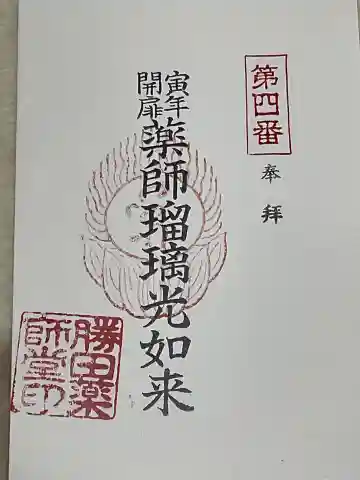 第四番
奉拝
寅年
開扉
薬師瑠璃光如来
勝田薬
師堂印